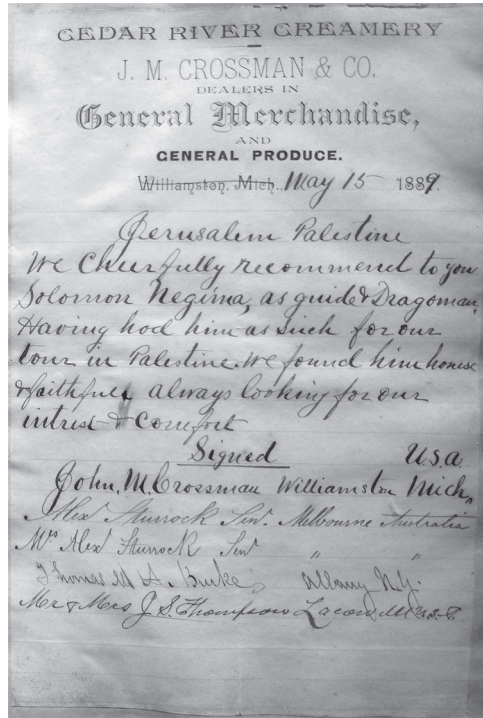 CEDAR RIVER CREAMERY
J. M. CROSSMAN & CO.
DEALERS IN
General Merchandise,
AND
GENERAL PRODUCE.
Williamston, Mich., May 15 1889.
Jerusalem Palestine
We Cheerfully recommend to you
Solomon Negima, as guide & Dragoman,
Having had him as such for our
tour in Palestine. We found him honest
& faithful, always looking for our
intrest & comfort
Signed U.S.a
John, M Crossman Williamston Mich,
Alex Sturrock Senr. Melbourne Australia
Mrs Alex Sturrock Senr " "
Thomas M A. Burke, Albany N.Y.
Mr & Mrs J. S. Thompson Lacon